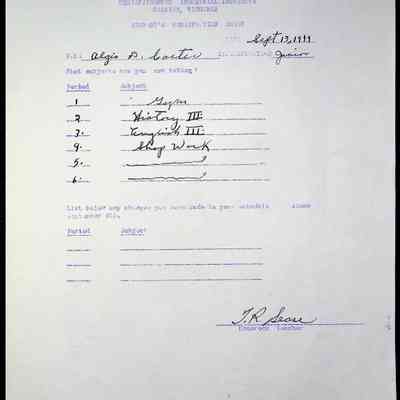 INDUSTRIAL INSTITUTE
VIRGINIA
Sept 13, 19
Algie D. Carter Junior
What subjects are you now taking?
Period Subject
1 Gym
2 History III
3. English III
4. Shop Work
5.
6.
List below any changes you have made in your schedule since
Period Subject
T. R. Sease
Homeroom Teacher